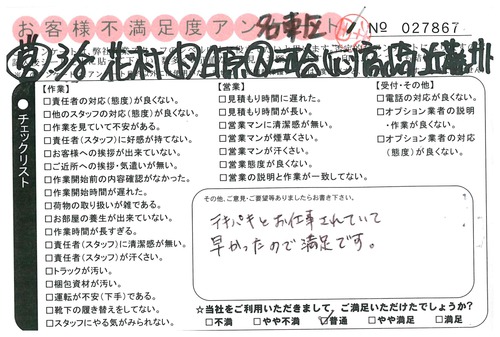 お客様不満足度アン
名東区
№ 027867
3/8
チェックリスト
【作業】
□責任者の対応(態度)が良くない。
□他のスタッフの対応(態度)が良くない。
□作業を見ていて不安がある。
□責任者(スタッフ)に好感が持てない。
□お客様への挨拶が出来ていない。
□ご近所への挨拶・気遣いが無い。
□作業開始前の内容確認がなかった。
□作業開始時間が遅れた。
□荷物の取り扱いが雑である。
□お部屋の養生が出来ていない。
□作業時間が長すぎる。
□責任者(スタッフ)に清潔感が無い。
□責任者(スタッフ)が汗くさい。
□トラックが汚い。
□梱包資材が汚い。
□運転が不安(下手)である。
□靴下の履き替えをしてない。
□スタッフにやる気がみられない。
【営業】
□見積もり時間に遅れた。
□見積もり時間が長い。
□営業マンに清潔感が無い。
□営業マンが煙草くさい。
□営業マンが汗くさい。
□営業態度が良くない。
□営業の説明と作業が一致してない。
【受付・その他】
□電話の対応が良くない。
□オプション業者の説明・作業が良くない。
□オプション業者の対応(態度)が良くない。
その他、ご意見・ご要望等ありましたらお書き下さい。
テキパキとお仕事されていて
早かったので満足です。
☆当社をご利用いただきまして、ご満足いただけたでしょうか?
□不満 □やや不満 ☑普通 □やや満足 □満足